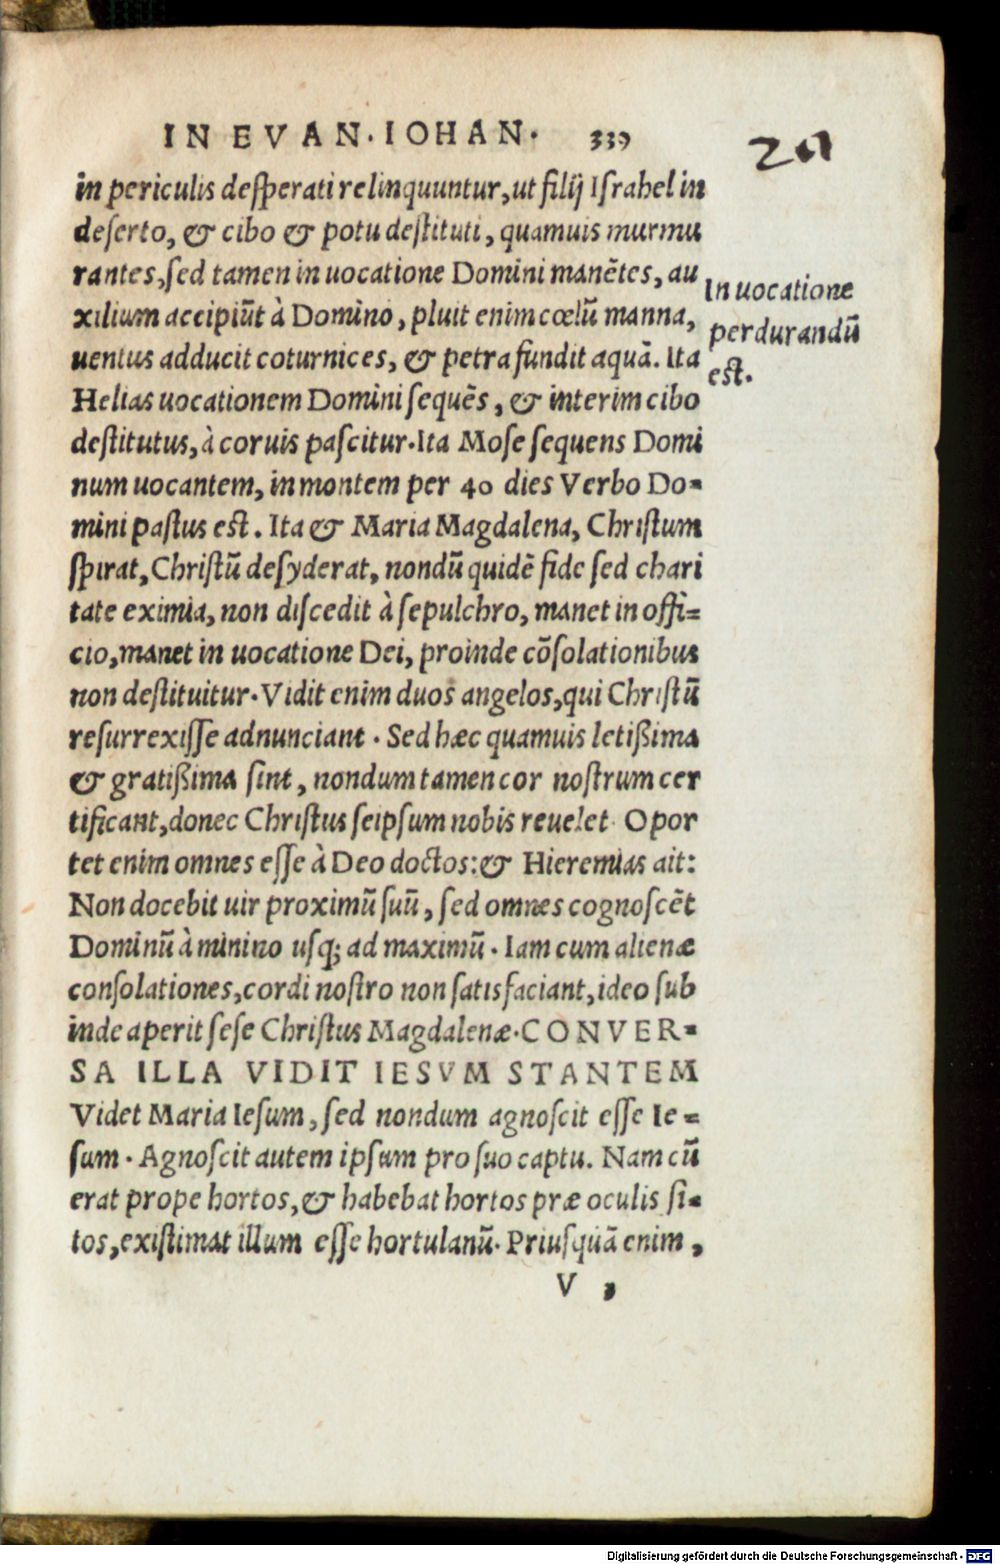 IN EVAN. IOHAN. 339
20
in periculis desperati relinquuntur, ut filij Israhel in
deserto, & cibo & potu destituti, quamuis murmu
rantes, sed tamen in uocatione Domini manẽtes, au
xilium accipiũt à Domino, pluit enim cœlũ manna,
uentus adducit coturnices, & petra fundit aquã. Ita
Helias uocationem Domini sequẽs, & interim cibo
destitutus, à coruis pascitur. Ita Mose sequens Domi
num uocantem, in montem per 40 dies Verbo Do-
mini pastus est. Ita & Maria Magdalena, Christum
spirat, Christũ desyderat, nondũ quidẽ fide sed chari
tate eximia, non discedit à sepulchro, manet in offi=
cio, manet in uocatione Dei, proinde cõsolationibus
non destituitur. Vidit enim duos angelos, qui Christũ
resurrexisse adnunciant. Sed hæc quamuis letißima
& gratißima sint, nondum tamen cor nostrum cer
tificant, donec Christus seipsum nobis reuelet. Opor
tet enim omnes esse à Deo doctos: & Hieremias ait:
Non docebit uir proximũ suũ, sed omnes cognoscẽt
Dominũ à minino usq; ad maximũ. Iam cum alienæ
consolationes, cordi nostro non satisfaciant, ideo sub
inde aperit sese Christus Magdalenæ. CONVER=
SA ILLA VIDIT IESVM STANTEM
Videt Maria Iesum, sed nondum agnoscit esse Ie=
sum. Agnoscit autem ipsum pro suo captu. Nam cũ
erat prope hortos, & habebat hortos præ oculis si-
tos, existimat illum esse hortulanũ. Priusquã enim,
V ,
In uocatione
perdurandũ
est.
Digitalisierung gefördert durch die Deutsche Forschungsgemeinschaft - DFG